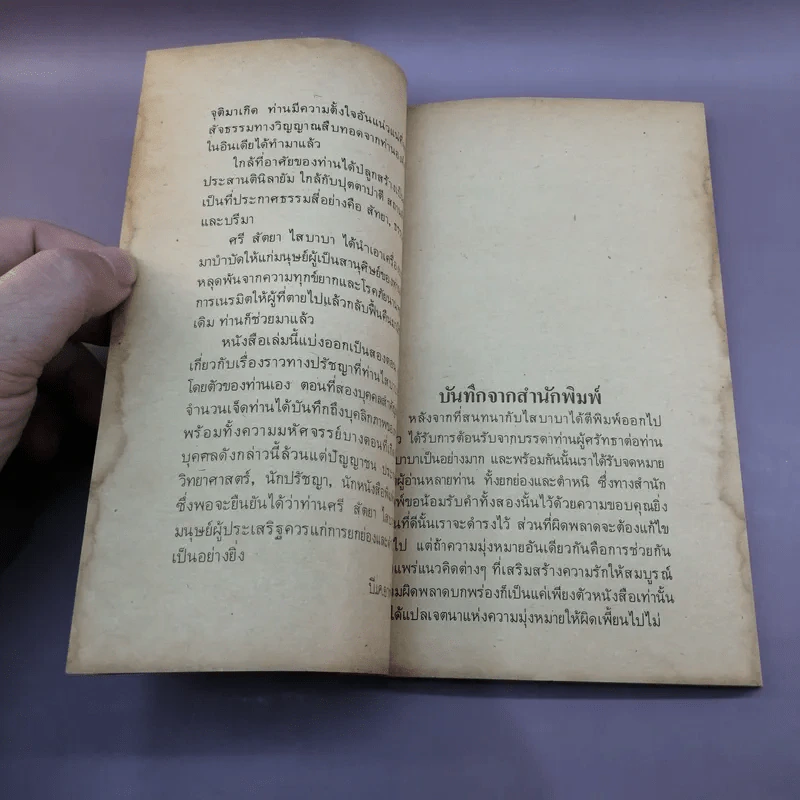 จุติมาเกิด ท่านมีความตั้งใจอันแน่วแน่
สัจธรรมทางวิญญาณสืบทอดจากท่าน
ในอินเดียได้ทำมาแล้ว
ใกล้ที่อาศัยของท่านได้ปลูกสร้าง
ประสานตินิลายัม ใกล้กับปุตตาปาตี
เป็นที่ประกาศธรรมสี่อย่างคือ สัทยา,
และบรีมา
ศรี สัตยา ไสบาบา ได้นำเอา
มาบำบัดให้แก่มนุษย์ผู้เป็นสานุศิษย์ของ
หลุดพ้นจากความทุกข์ยากและโรคภัย
การเนรมิตให้ผู้ที่ตายไปแล้วกลับฟื้นคืน
เดิม ท่านก็ช่วยมาแล้ว
หนังสือเล่มนี้แบ่งออกเป็นสองตอน
เกี่ยวกับเรื่องราวทางปรัชญาที่ท่าน
โดยตัวของท่านเอง ตอนที่สองบุคคลสำคัญ
จำนวนเจ็ดท่านได้บันทึกถึงบุคลิกภาพ
พร้อมทั้งความมหัศจรรย์บางตอน
บุคคลดังกล่าวนี้ล้วนแต่ปัญญาชน
วิทยาศาสตร์, นักปรัชญา, นักหนังสือพิมพ์
ซึ่งพอจะยืนยันได้ว่าท่านศรี สัตยา
มนุษย์ผู้ประเสริฐควรแก่การยกย่อง
เป็นอย่างยิ่ง
บันทึกจากสำนักพิมพ์
หลังจากที่สนทนากับไสบาบาได้ตีพิมพ์ออกไป
ได้รับการต้อนรับจากบรรดาท่านผู้ศรัทธาต่อท่าน
บาบาเป็นอย่างมาก และพร้อมกันนั้นเราได้รับจดหมาย
ผู้อ่านหลายท่าน ทั้งยกย่องและตำหนิ ซึ่งทางสำนัก
ขอน้อมรับคำทั้งสองนั้นไว้ด้วยความขอบคุณยิ่ง
ที่ดีนั้นเราจะดำรงไว้ ส่วนที่ผิดพลาดจะต้องแก้ไข
ไป แต่ถ้าความมุ่งหมายอันเดียวกันคือการช่วยกัน
แพร่แนวคิดต่างๆ ที่เสริมสร้างความรักให้สมบูรณ์
ผิดพลาดบกพร่องก็เป็นแค่เพียงตัวหนังสือเท่านั้น
ได้แปลเจตนาแห่งความมุ่งหมายให้ผิดเพี้ยนไปไม่